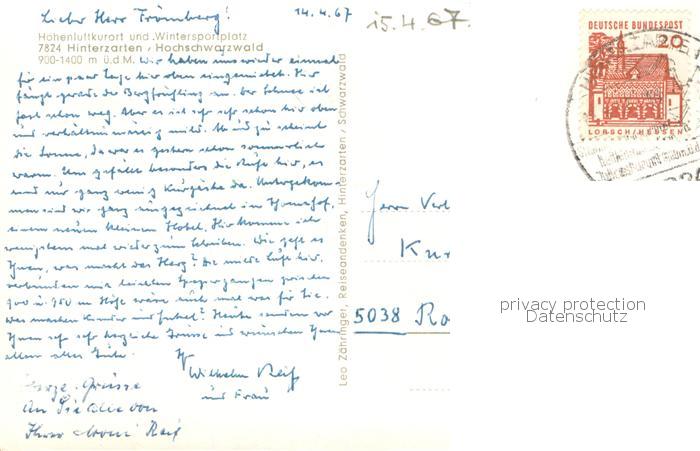 Lieber Herr Frömberg! 14.4.67
15.4.67.
Höhenluftkurort und Wintersportplatz
7824 Hinterzarten / Hochschwarzwald
900-1400 m ü.d.M. Wir haben uns wieder einmal
für ein paar Tage hier oben eingenistet. Hier
fängt gerade der Bergfrühling an. Der Schnee ist
fast schon weg. Aber es ist sehr sehr schön hier oben
und verhältnismässig mild. Ab und zu scheint
die Sonne, da war es gestern schon sommerlich
warm. Uns gefällt besonders die Ruhe hier, es
sind nur ganz wenig Kurgäste da. Untergekom-
men sind wir ganz ausgezeichnet im Thomahof,
einem neuen kleinen Hotel. Hier komme ich
wenigstens mal wieder zum Schreiben. Wie geht es
Ihnen, was macht das Herz? Die milde Luft hier,
verbunden mit leichten Spaziergängen zwischen
900 u. 950 m Höhe wäre auch mal was für Sie.
Was machen Kinder und Enkel? Heute senden wir
Ihnen sehr sehr herzliche Grüsse und wünschen Ihnen
allen alles Gute. Ihr
Wilhelm Reif
und Frau
Herzl. Grüsse
an Sie alle von
Ihrer Reif
Leo Zähringer, Reiseandenken, Hinterzarten / Schwarzwald
Herrn Verl
Kur
5038 Ro
DEUTSCHE BUNDESPOST
20
LORSCH/HESSEN
privacy protection
Datenschutz